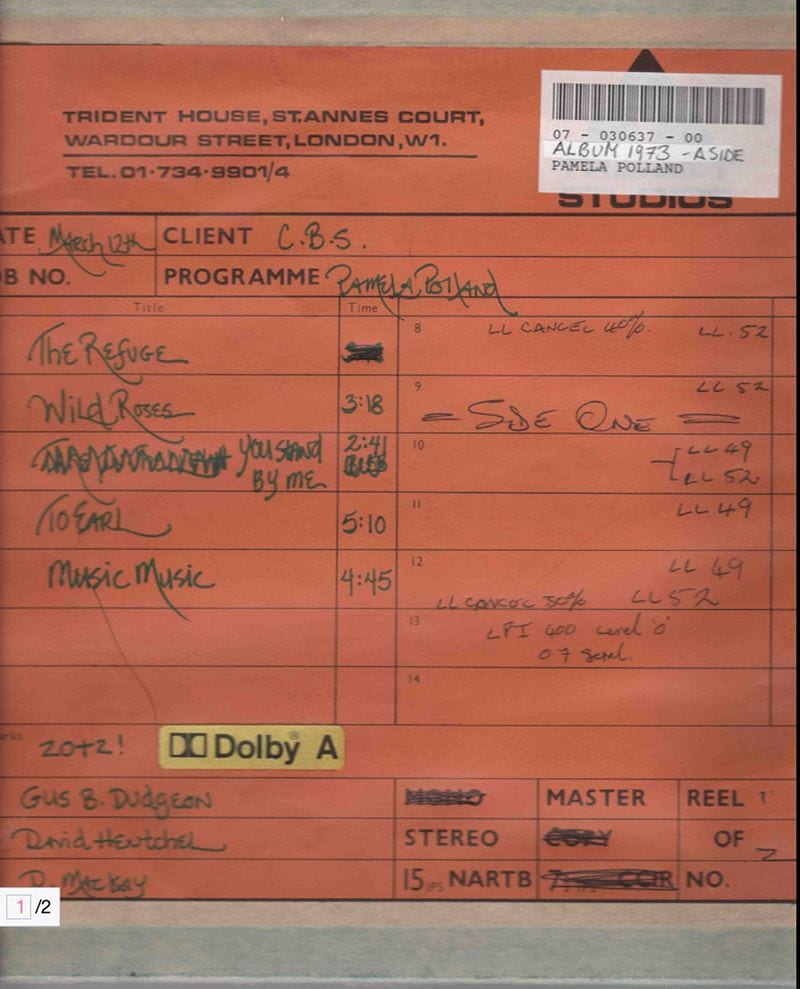 TRIDENT HOUSE, ST.ANNES COURT,
WARDOUR STREET, LONDON, W1.
TEL. 01·734·9901/4
07 - 030637 - 00
ALBUM 1973 - A SIDE
PAMELA POLLAND
STUDIOS
ATE March 12th CLIENT C.B.S.
B NO. PROGRAMME PAMELA POLLAND
Title Time
The Refuge 8 LL CANCEL 40%. LL. 52
Wild Roses 3:18 9 LL 52
= SIDE ONE =
YOU STAND BY ME 2:41 10 LL 49
LL 52
To Earl 5:10 11 LL 49
Music Music 4:45 12 LL 49
LL CANCEL 30% LL 52
13 400 Level 'O'
14
arks zotz! Dolby® A
Gus B. Dudgeon MONO MASTER REEL 1
David Hentchel STEREO COPY OF 2
D. Mackay 15 IPS NARTB 7 IPS CCIR NO.
1 /2